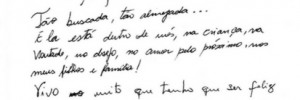 Tão buscada, tão almejada...
Ela está dentro de nós, na criança, na
vontade, no desejo, no amor pelo próximo, nos
meus filhos e família!
Vivo no mito que tenho que ser feliz